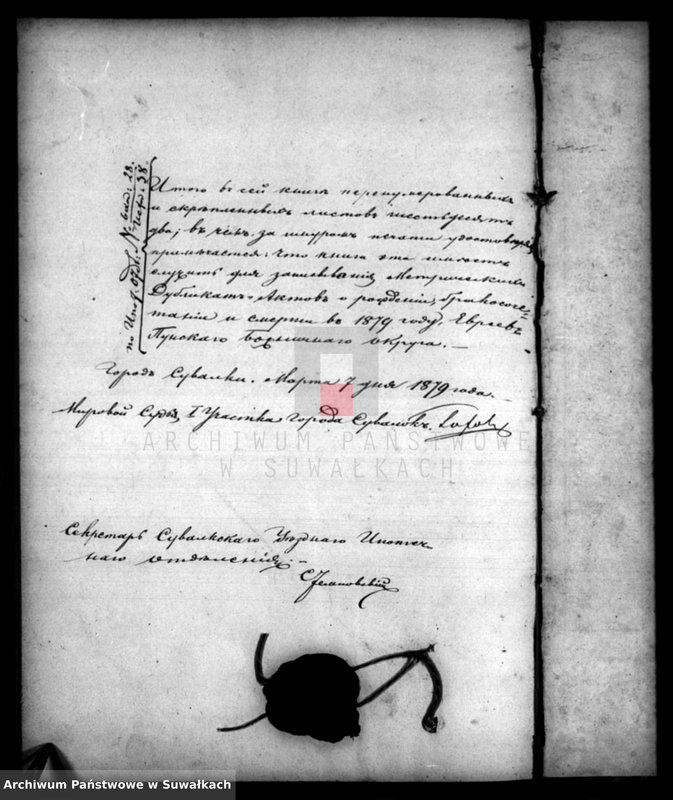 по Ипот. Отд. № вход. 28.
Исход. 38.
Итого въ сей книгѣ перенумерованныхъ
и скрѣпленныхъ листовъ шестьдесятъ
два; въ чемъ за шнуромъ печати удостовѣ
что книга эта имѣетъ
служить для записыванія Метрическихъ
Дубликатъ-Актовъ о рожденіи, бракосоче-
таніи и смерти въ 1879 году, Евреевъ
Пунскаго Божничнаго округа. —
Городъ Сувалки. Марта 7 дня 1879 года. —
Мировой Судья I Участка Города Сувалокъ
ARCHIWUM PAŃSTWOWE
W SUWAŁKACH
Секретарь Сувалкскаго Уѣзднаго Ипотеч-
наго отдѣленія. —
Archiwum Państwowe w Suwałkach